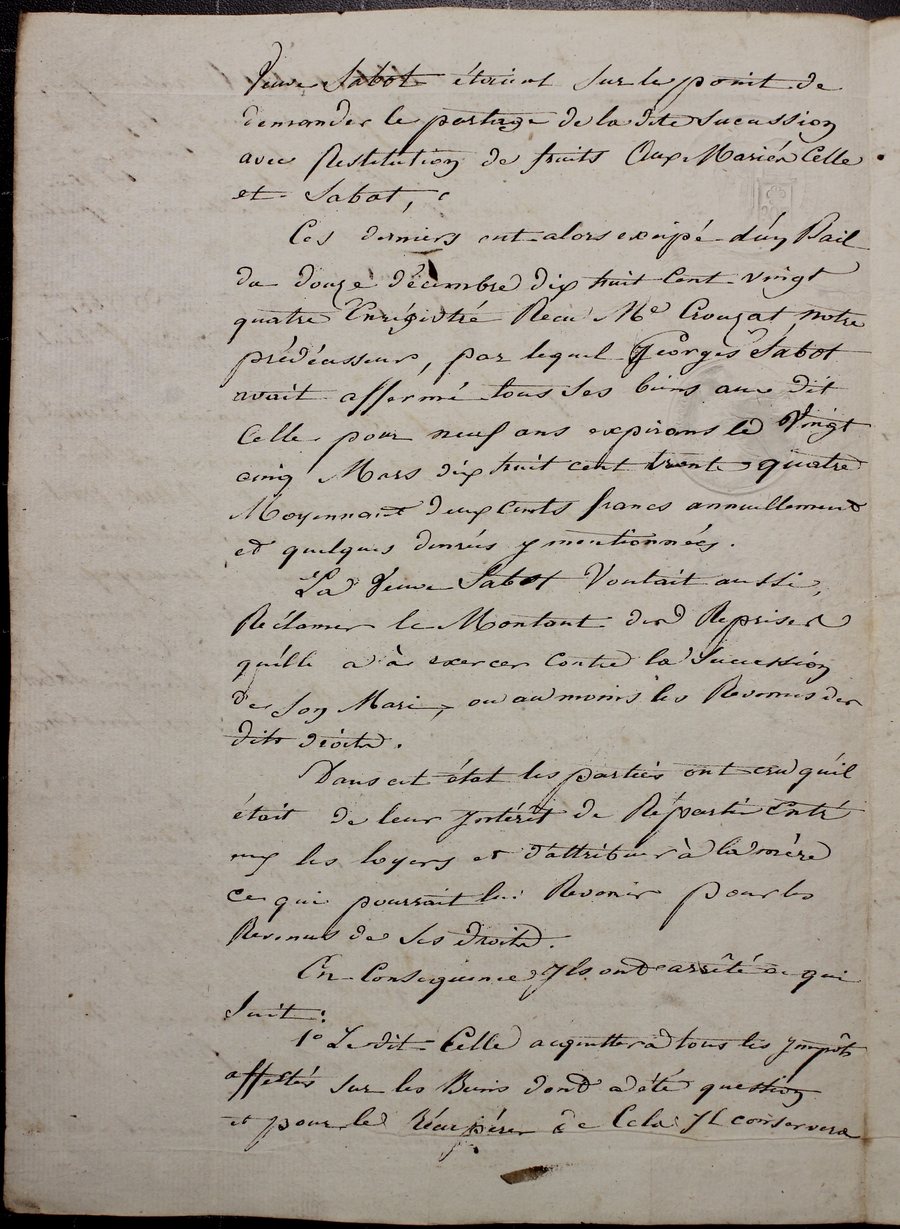 Veuve Sabot étaient sur le point de
demander le partage de la dite Succession
avec Restitution de fruits Aux Mariés Celle
et Sabot,
Ces derniers ont alors excipé d'un Bail
du douze décembre dix huit Cent vingt
quatre Enrégistré Recu Me Crouzat notre
prédécesseur, par lequel Georges Sabot
avait affermé tous ses biens au dit
Celle pour neuf ans expirans le Vingt
cinq Mars dix huit cent trente quatre
Moyennant deux cents francs annuellement
et quelques denrées y mentionnées.
La Veuve Sabot Voulait aussi,
Réclamer le Montant des Reprises
qu'elle a à exercer Contre la Succession
de Son Mari, ou au moins les Revenus des
dits droits.
Dans cet état les parties ont cru qu'il
était de leur Intérêt de Répartir Entre
eux les loyers et d'attribuer à la mère
ce qui pourrait lui Revenir pour les
Revenus de Ses droits.
En Conséquence, Ils ont arrêté ce qui
Suit:
1o Le dit Celle acquittera tous les Impôts
affectés sur les Biens dont a été question
et pour le récupérer de Cela Il conservera